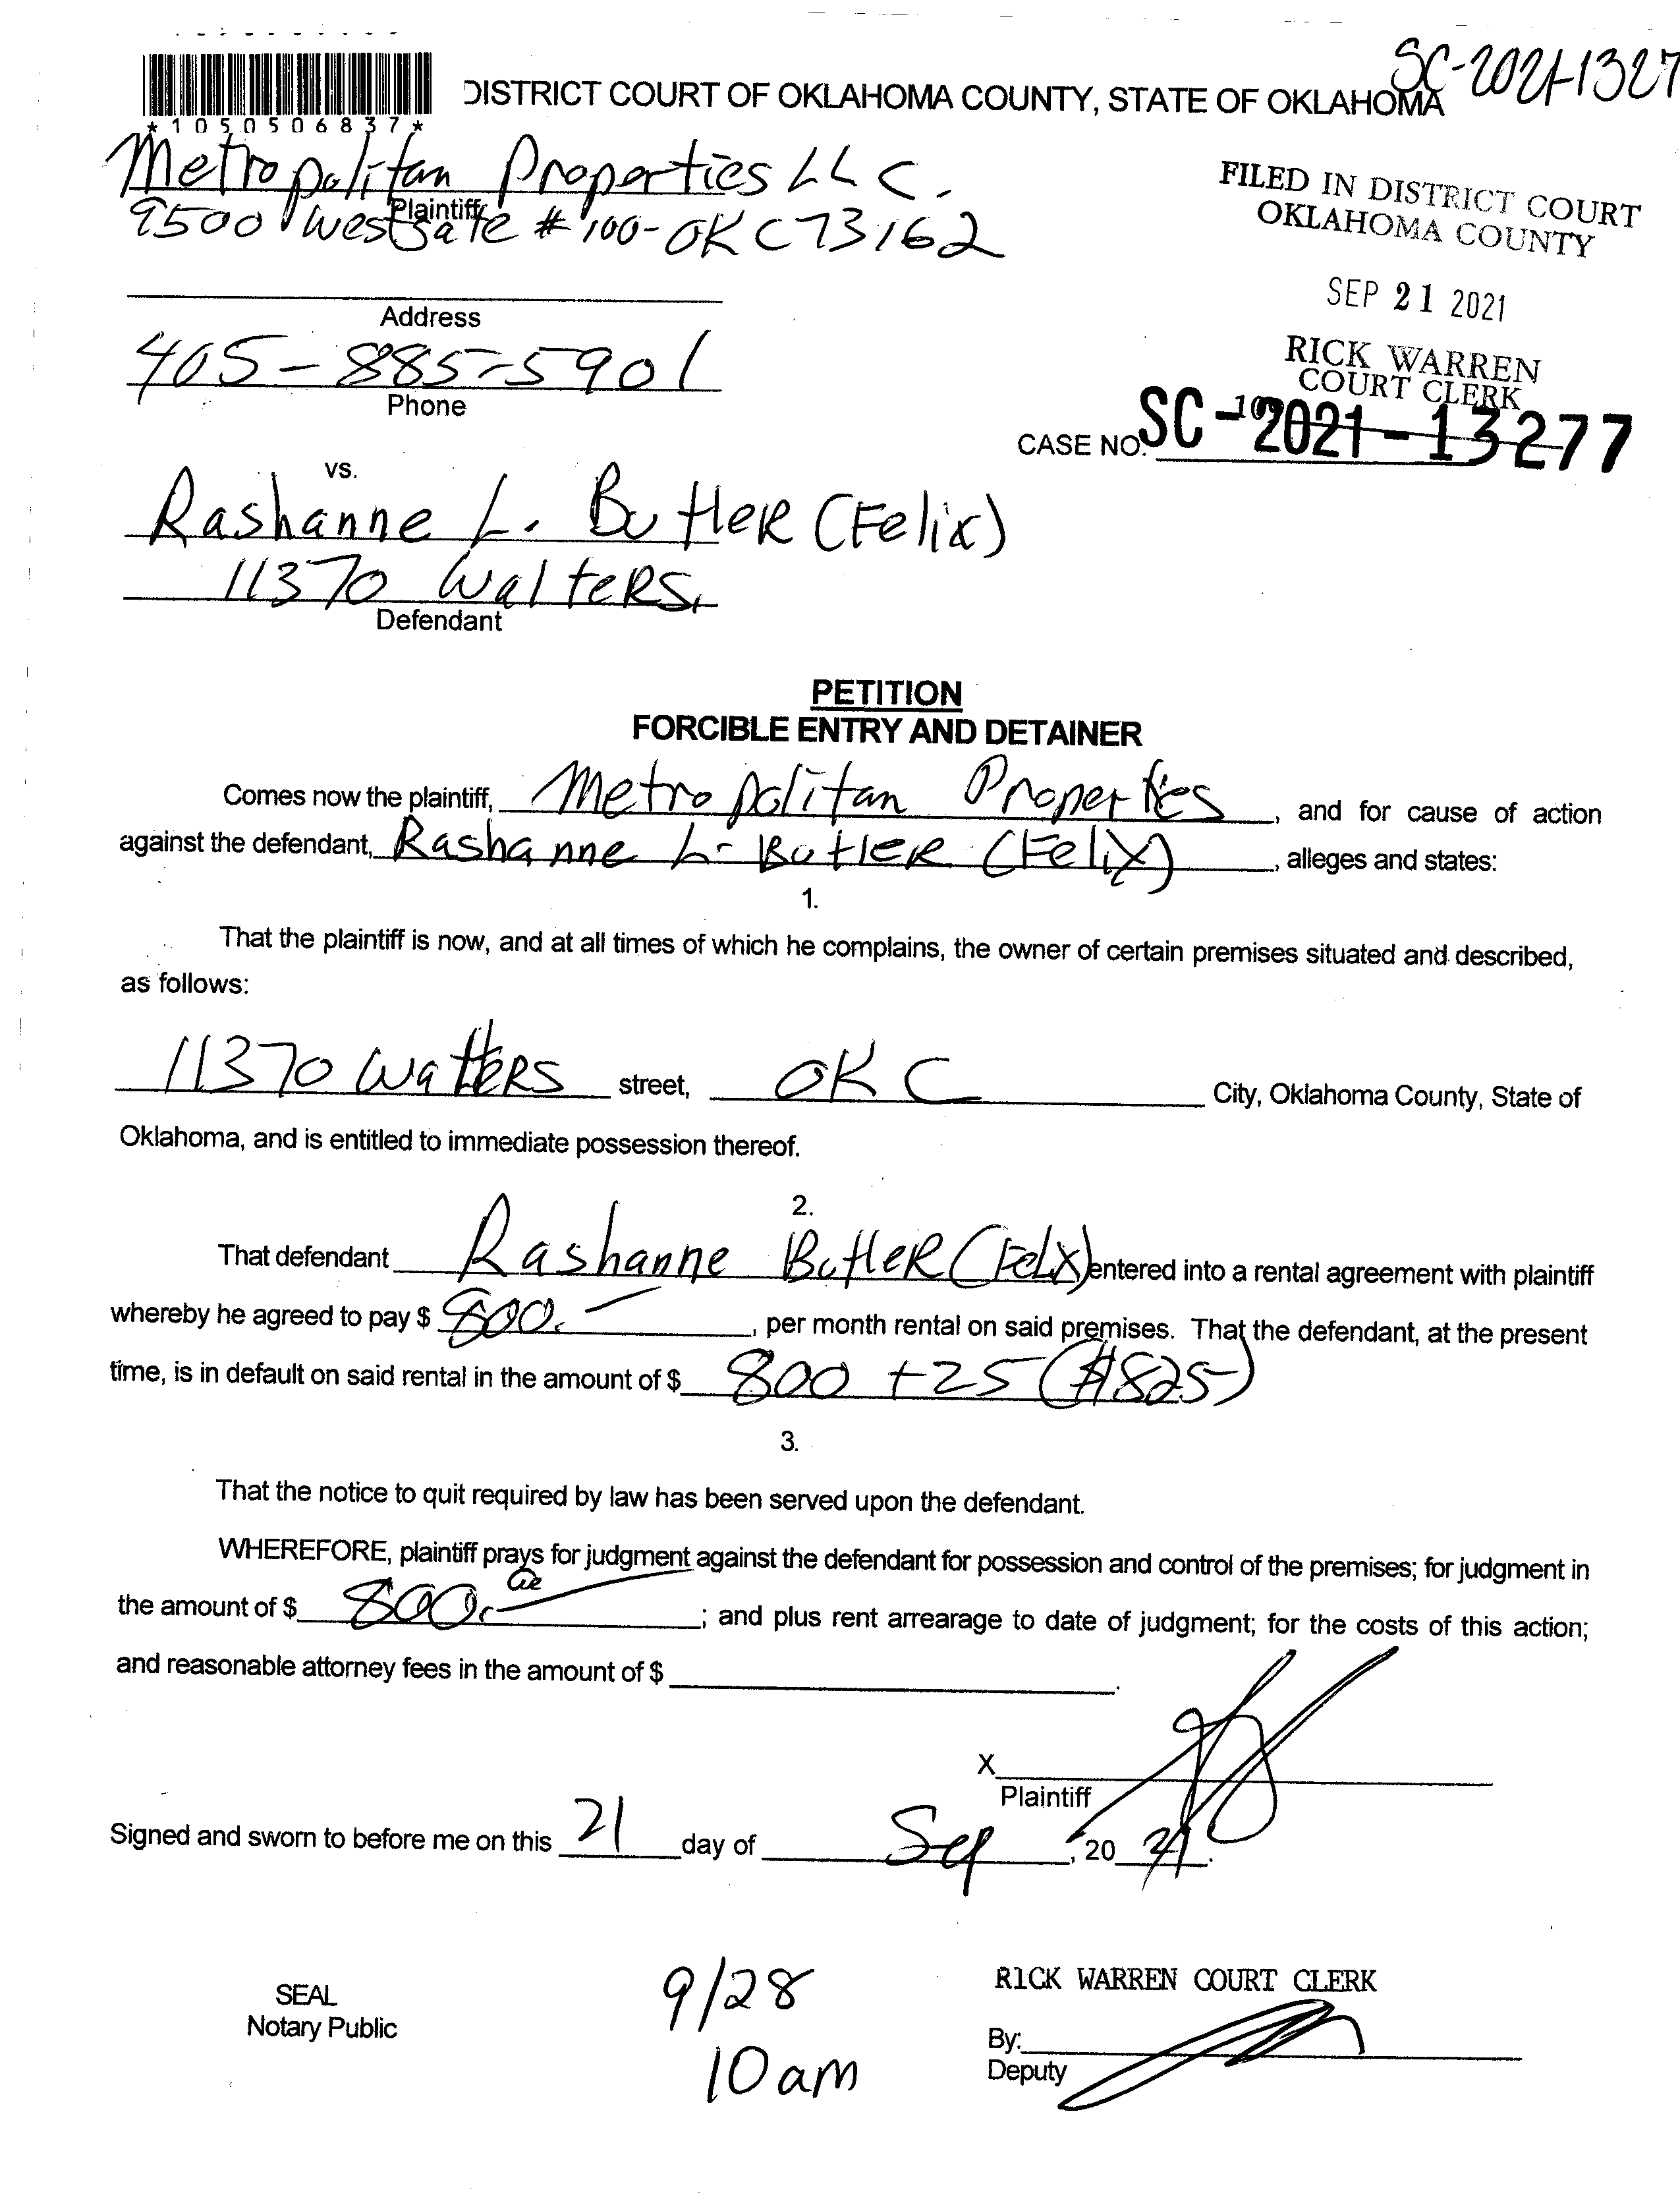 SC-2021-1327
DISTRICT COURT OF OKLAHOMA COUNTY, STATE OF OKLAHOMA
*1050506837*
Metropolitan Properties LLC.
Plaintiff
9500 Westgate #100-OKC 73162
FILED IN DISTRICT COURT
OKLAHOMA COUNTY
SEP 21 2021
RICK WARREN
COURT CLERK
Address
405-885-5901
Phone
CASE NO. SC-2021-13277
vs.
Rashanne L. Butler (Felix)
11370 Walters
Defendant
PETITION
FORCIBLE ENTRY AND DETAINER
Comes now the plaintiff, Metropolitan Properties, and for cause of action
against the defendant, Rashanne L. Butler (Felix), alleges and states:
1.
That the plaintiff is now, and at all times of which he complains, the owner of certain premises situated and described,
as follows:
11370 Walters street, OKC City, Oklahoma County, State of
Oklahoma, and is entitled to immediate possession thereof.
2.
That defendant Rashanne Butler (Felix) entered into a rental agreement with plaintiff
whereby he agreed to pay $ 800.-, per month rental on said premises. That the defendant, at the present
time, is in default on said rental in the amount of $ 800 +25 ($825-)
3.
That the notice to quit required by law has been served upon the defendant.
WHEREFORE, plaintiff prays for judgment against the defendant for possession and control of the premises; for judgment in
the amount of $ 800.-; and plus rent arrearage to date of judgment; for the costs of this action;
and reasonable attorney fees in the amount of $ .
X
Plaintiff
Signed and sworn to before me on this 21 day of Sep, 20 21.
SEAL
Notary Public
9/28
10am
RICK WARREN COURT CLERK
By:
Deputy